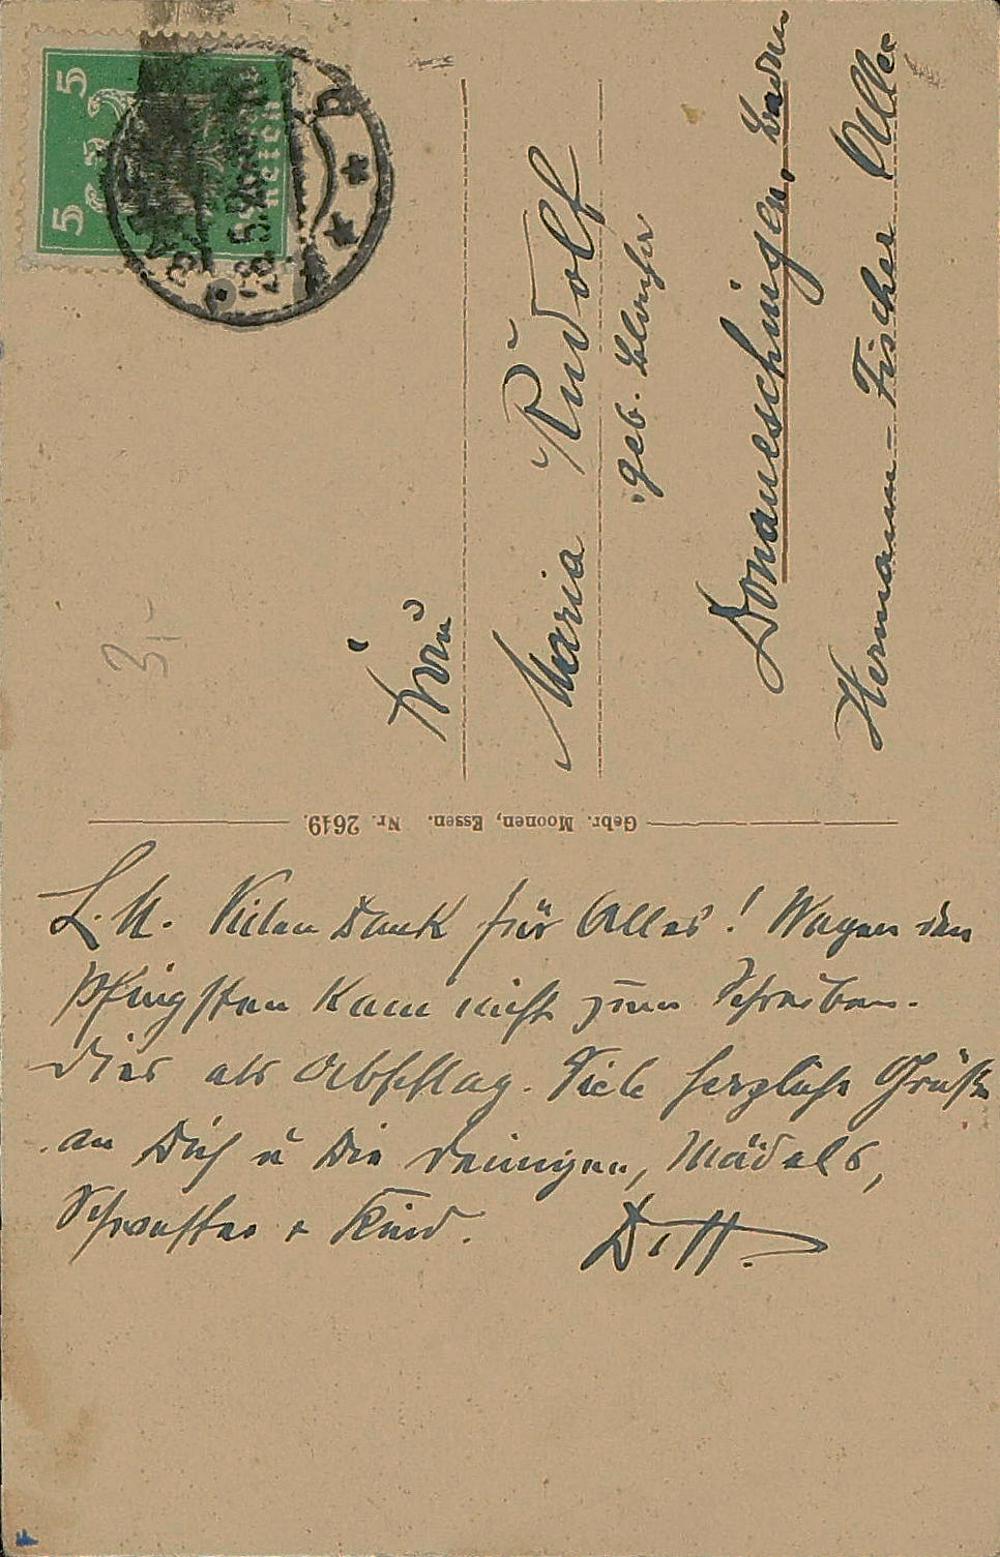 L. M. Vielen Dank für Alles! Wegen den
Pfingsten kam nicht zum Schreiben.
Dies als Abschlag. Viele herzliche Grüße
an Dich u die Deinigen, Mädels,
Schwester + Kind. D. H.
Gebr. Moonen, Essen. Nr. 2619.
Frau
Maria Rudolf
geb.
Donaueschingen, Baden
Hermann-Fischer Allee
5 5
3,-